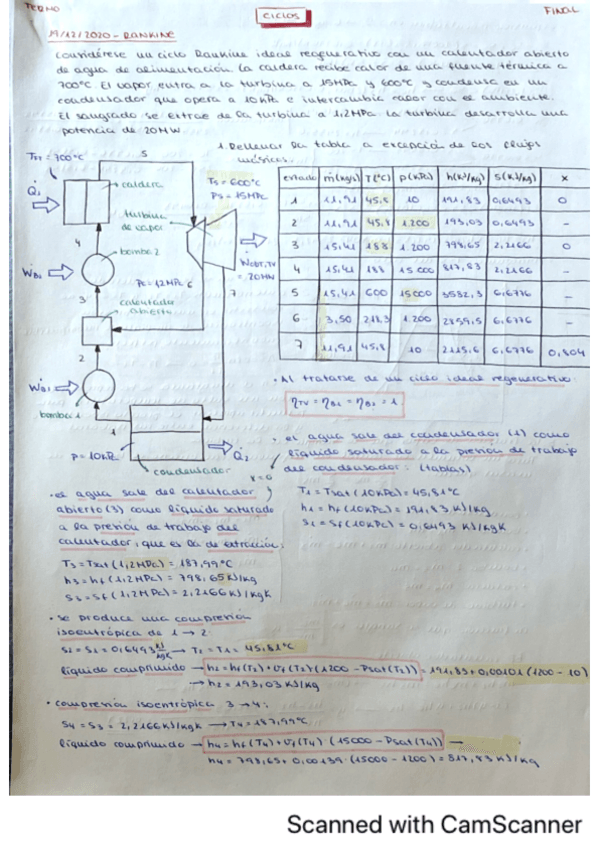 TERMO
CICLOS
FINAL
19/12/2020 - RANKINE
Considérese un ciclo Rankine ideal regenerativo con un calentador abierto
de agua de alimentación. La caldera recibe calor de una fuente térmica a
700°C. El vapor entra a la turbina a 15MPa y 600°C y condensa en un
condensador que opera a 10kPa e intercambia calor con el ambiente.
El sangrado se extrae de la turbina a 1,2MPa. La turbina desarrolla una
potencia de 20MW.
1. Rellenar la tabla a excepción de los flujos
másicos.
= 700°C
5
T5 = 600°C
P5 = 15MPa
Q̇1
caldera
turbina
de vapor
4
bomba 2
ẆB2
= 20MW
6
7
3
calentador
abierto
2
ẆB1
bomba 1
1
P = 10kPa
condensador
Q̇2
x=0
estado ṁ(kg/s) T(°C) p(kPa) h(kJ/kg) s(kJ/kg) x
1 11,91 45,8 10 191,83 0,6493 0
2 11,91 45,8 1.200 193,03 0,6493 -
3 15,41 188 1.200 798,65 2,2166 0
4 15,41 188 15000 817,83 2,2166 -
5 15,41 600 15000 3582,3 6,6776 -
6 3,50 218,3 1.200 2859,5 6,6776 -
7 11,91 45,8 10 2115,6 6,6776 0,804
· Al tratarse de un ciclo ideal regenerativo:
ηTV = ηB1 = ηB2 = 1
· el agua sale del condensador (1) como
líquido saturado a la presión de trabajo
del condensador: (tablas)
T1 = Tsat (10kPa) = 45,81°C
h1 = hf (10kPa) = 191,83 kJ/kg
s1 = sf (10kPa) = 0,6493 kJ/kgK
· el agua sale del calentador
abierto (3) como líquido saturado
a la presión de trabajo del
calentador, que es la de extracción:
T3 = Tsat (1,2MPa) = 187,99°C
h3 = hf (1,2MPa) = 798,65 kJ/kg
s3 = sf (1,2MPa) = 2,2166 kJ/kgK
· se produce una compresión
isoentrópica de 1 → 2:
s2 = s1 = 0,6493 kJ/kgK → T2 = T1 = 45,81°C
líquido comprimido → h2 = hf(T2) + vf(T2) (1200 - Psat(T2)) = 191,83 + 0,00101 (1200 - 10)
→ h2 = 193,03 kJ/kg
· compresión isoentrópica 3 → 4:
s4 = s3 = 2,2166 kJ/kgK → T4 = 187,99°C
líquido comprimido → h4 = hf(T4) + vf(T4) · (15000 - Psat(T4)) →
h4 = 798,65 + 0,00139 · (15000 - 1200) = 817,83 kJ/kg
Scanned with CamScanner